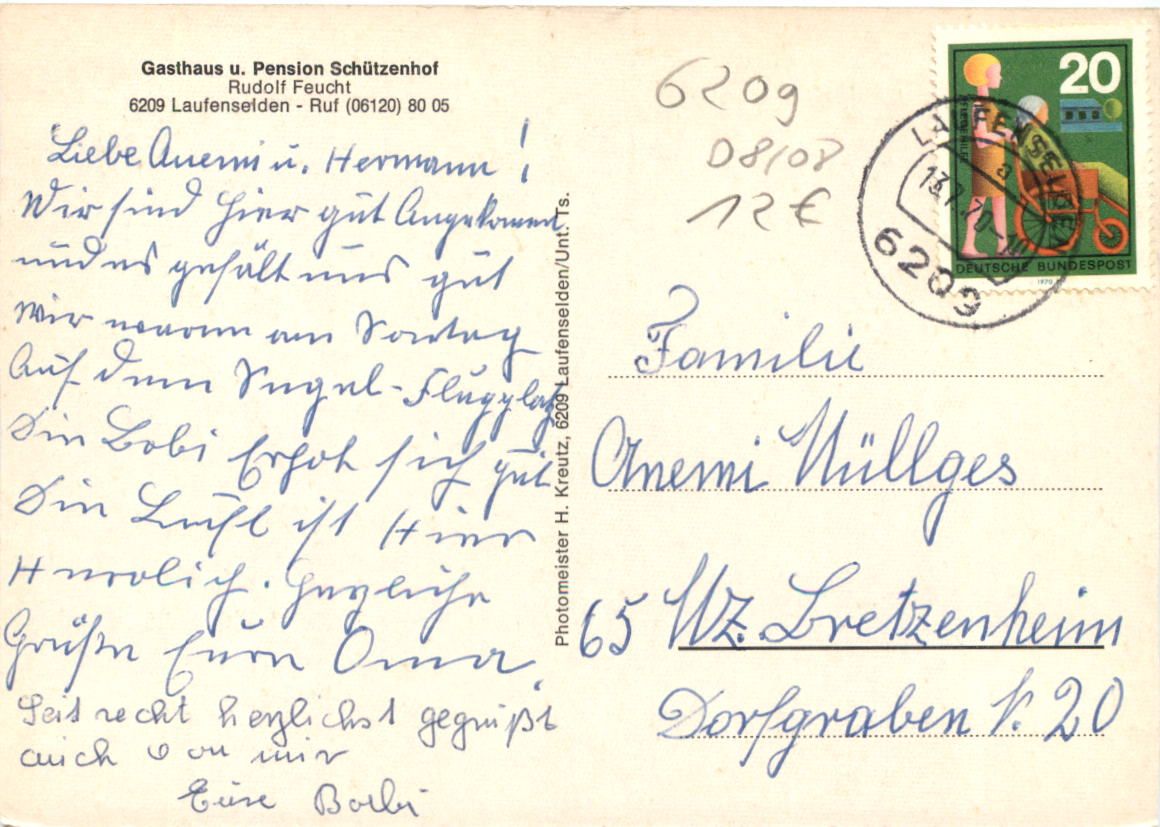 Gasthaus u. Pension Schützenhof
Rudolf Feucht
6209 Laufenselden - Ruf (06120) 80 05
Liebe Anemi u. Hermann!
Wir sind hier gut Angekomen
und es gefält uns gut
wir waren am Sontag
Auf dem Segel-Flugplatz
Die Bobi Erholt sich gut
Die Luft ist Hier
Herrlich. Herzliche
Grüße Eure Oma.
Seid recht herzlichst gegrüßt
auch von mir
Eure Barbi
Photomeister H. Kreutz, 6209 Laufenselden/Unt. Ts.
6209
D8/08
12 €
20
DEUTSCHE BUNDESPOST
1970
LAUFENSELDEN
a
13.7.70
6209
Familie
Anemi Nüllges
65 Mz. Bretzenheim
Dorfgraben N. 20